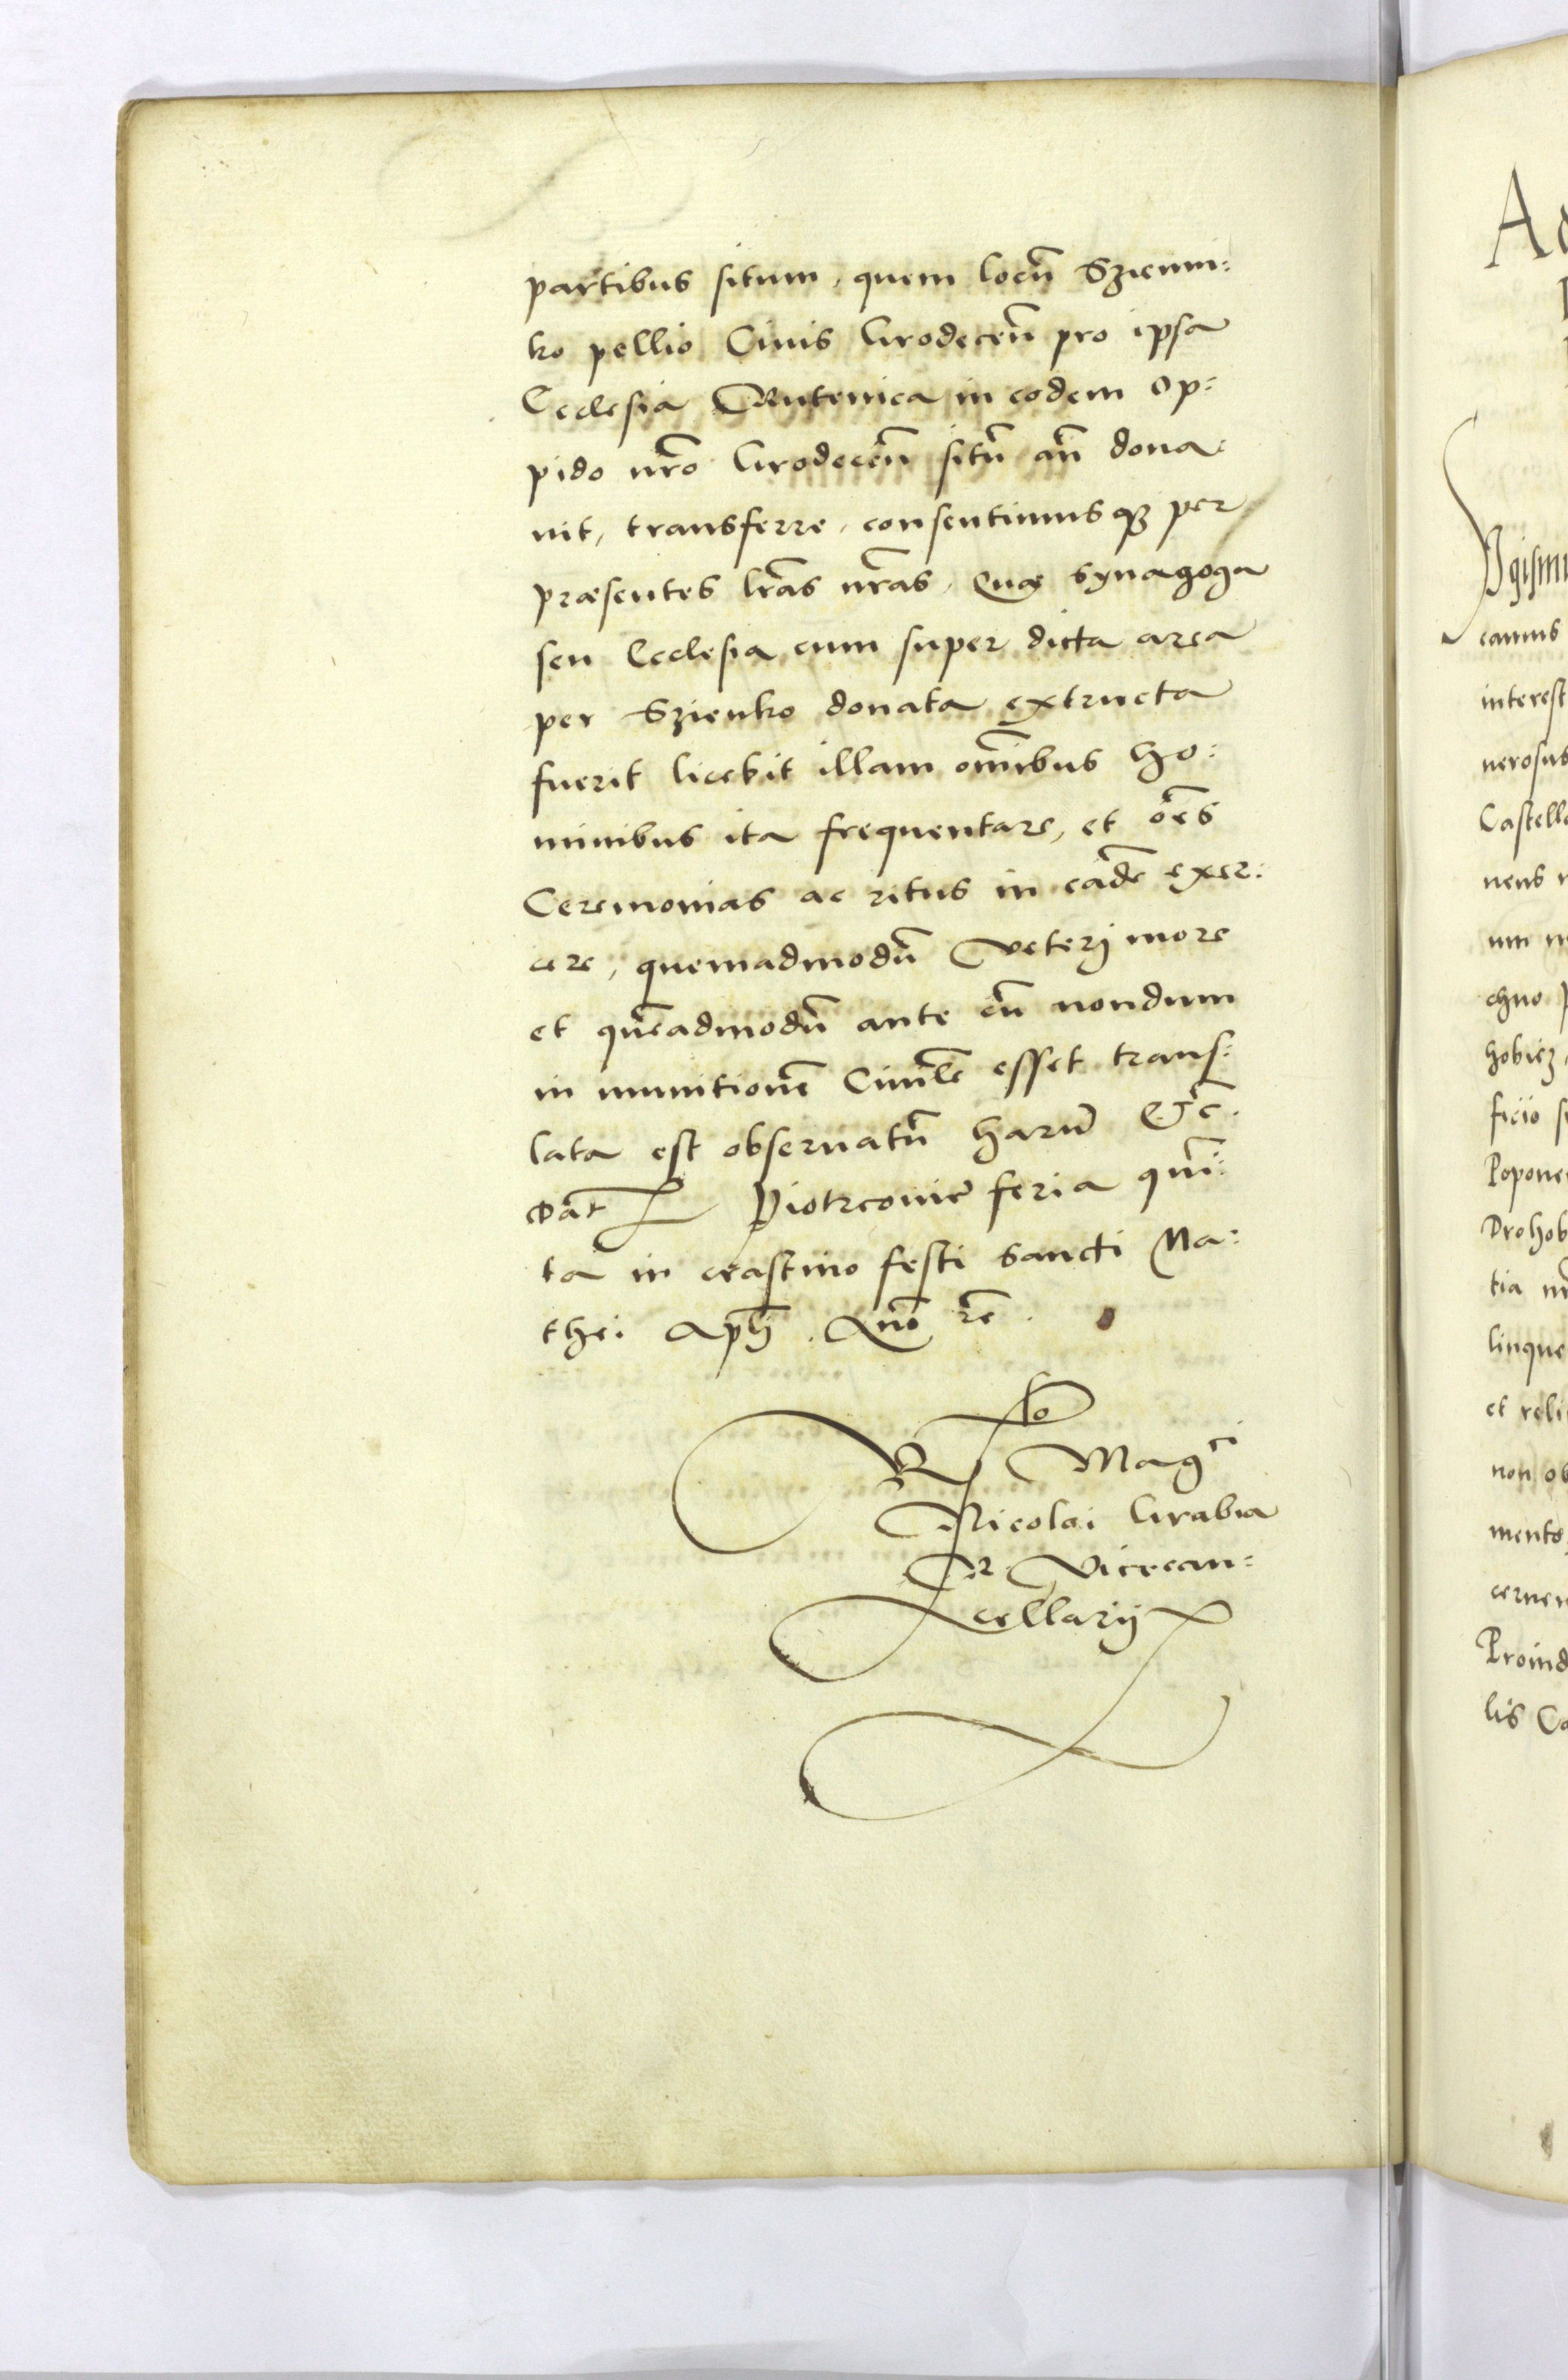 partibus situm, quem locũ Szienni:
ko pellio Ciuis Grodeceñ pro ipsa
Ecclesia Rutenica in eodem op:
pido nr̃o Grodeceñ sitũ añ dona
uit, transferre, consentimusq3 per
præsentes lr̃as nr̃as, Quæ synagoga
seu Ecclesia cum super dicta area
per Szienko donata extructa
fuerit licebit illam om̃ibus ho:
minibus ita frequentare, et oẽs
Ceremonias ac ritus in eãdẽ exer:
cere, quemadmodũ Veterj more
et quẽadmodũ ante cũ nondum
in munitionẽ Ciuilẽ esset trans:
lata est obseruatũ harũ Etc̃.
Dat̃ Piotrcouiæ feria quin:
ta in crastino festi sancti Ma:
thei Apl̃i. Quo r̃e.
Ro
R Mag^ci
Nicolai Grabia
R. Vicecan:
cellarij
Ac
Sigism
camus
interest
nerosus
Castella
nens
um
chno
hobicz
ficio
Popone
Drohob
tia
linque
et reli
non ob
mento
cernen
Proind
lis Ca